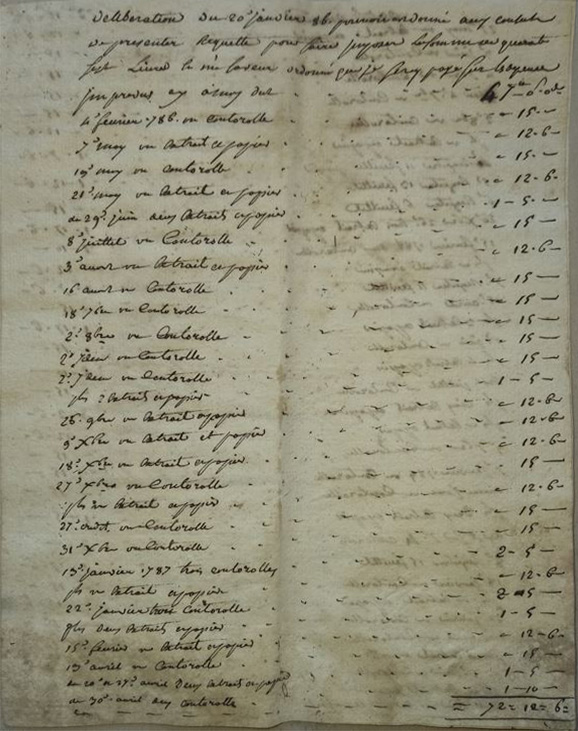 deliberation du 20e janvier 86. ordonné aux
de presenter Requette pour faire imposer la somme de
sept Livres
4e fevrier 1786. un Contorolle " 15 —
7e may un Extrait et papier " 12 - 6 —
19e may un Contorolle " 15 —
21e may un Extrait et papier " 12 - 6 —
du 29e juin deux Extraits et papier 1 - 5 —
8e juillet un Contorolle " 15 —
3e aoust un Extrait et papier " 12 - 6 —
16 aoust un Contorolle " 15 —
18e 7bre un Contorolle " 15 —
2e 8bre un Contorolle " 15 —
2e un Contorolle " 15 —
2e un Contorolle " 15 —
plus 2 Extraits et papier 1 - 5 —
26e 9bre un Extrait et papier " 12 - 6 —
9e Xbre un Extrait et papier " 12 - 6 —
18e Xbre un Extrait et papier " 12 - 6 —
27e Xbre un Contorolle 15 —
plus un Extrait et papier " 12 - 6 —
27e dudit un Contorolle " 15 —
31e Xbre un Contorolle " 15 —
13e janvier 1787 trois contorolles 2 - 5 —
plus un Extrait et papier " 12 - 6 —
22e janvier trois Contorolle 2 - 5 —
plus deux Extraits et papier 1 - 5 —
15e fevrier un Extrait et papier " 12 - 6 —
19e avril un Contorolle " 15 —
du 20e et 27e avril deux Extraits et papier 1 - 5 —
du 30e avril deux contorolle 1 - 10 —
72 = 12 = 6 =